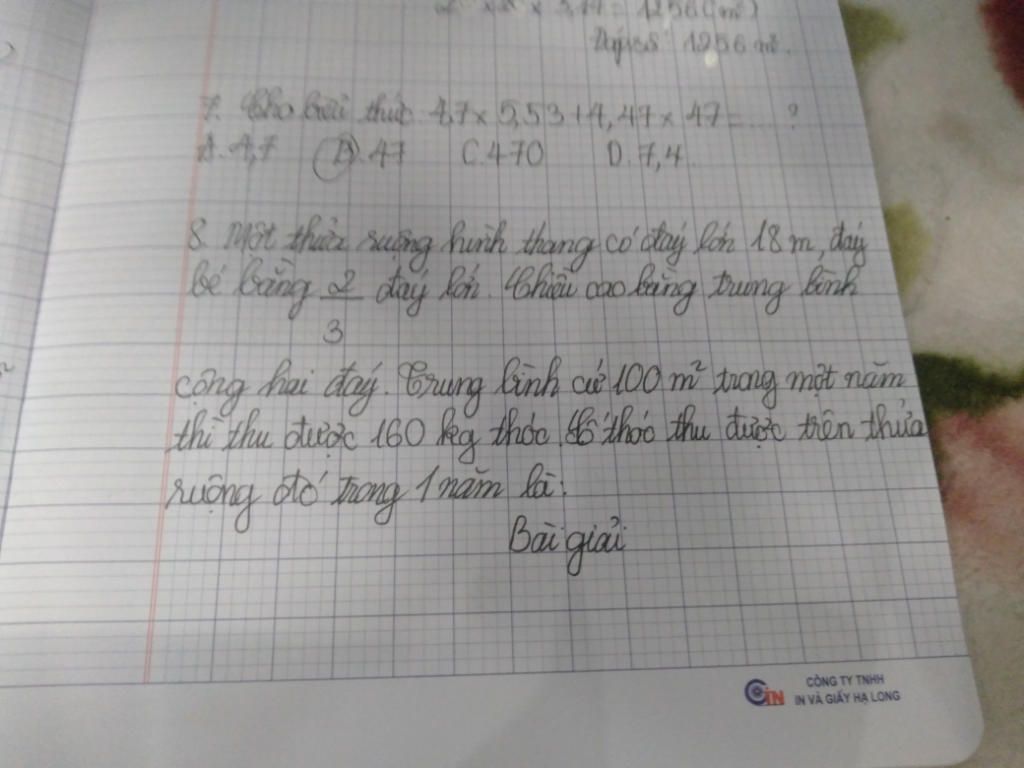 2 × 2 × 3,14 = 1256 (m²)
Đáp số: 1256 m².
7. Cho biểu thức 4,7 × 5,53 + 4,47 × 47 = .... ?
A. 4,7 B. 47 C. 470 D. 7,4
8. Một thửa ruộng hình thang có đáy lớn 18 m, đáy
bé bằng 2/3 đáy lớn. Chiều cao bằng trung bình
cộng hai đáy. Trung bình cứ 100 m² trong một năm
thì thu được 160 kg thóc. Số thóc thu được trên thửa
ruộng đó trong 1 năm là:
Bài giải
CÔNG TY TNHH
IN VÀ GIẤY HẠ LONG